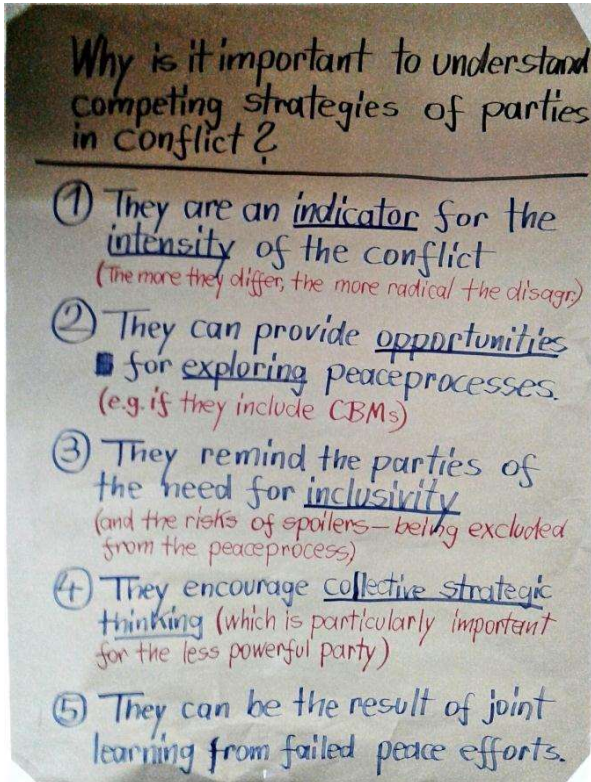 Why is it important to understand
competing strategies of parties
in conflict?
① They are an indicator for the
intensity of the conflict
(The more they differ, the more radical the disagr.)
② They can provide opportunities
for exploring peaceprocesses.
(e.g. if they include CBMs)
③ They remind the parties of
the need for inclusivity
(and the risks of spoilers – being excluded
from the peaceprocess)
④ They encourage collective strategic
thinking (which is particularly important
for the less powerful party)
⑤ They can be the result of joint
learning from failed peace efforts.